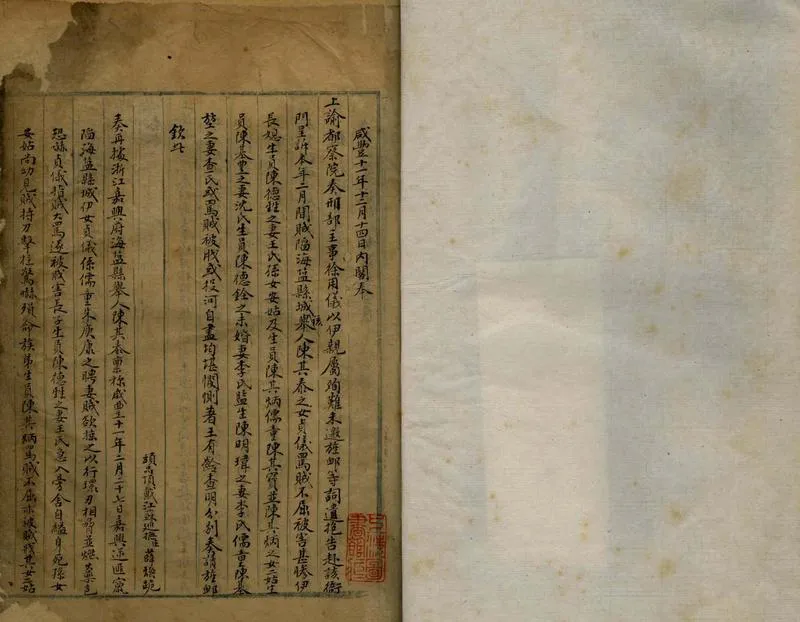 咸豐十一年十二月十四日內閣奉
上諭都察院奏刑部主事徐用儀以伊親屬殉難未邀旌卹等詞遣抱告赴該衙
門呈訴本年二月間賊陷海盐縣城該舉人陳其泰之女貞儀罵賊不屈被害甚慘伊
長媳生員陳德甡之妻王氏係女安姑及生員陳其炳儒童陳其寳並陳其炳之女二姑生
員陳基豐之妻沈氏生員陳德銓之未婚妻李氏監生陳明瑋之妻李氏儒童陳基
堃之妻查氏或罵賊被戕或投河自盡均堪憫惻著王有齡查明分别奏請旌卹
欽此
頭品頂戴江蘇巡撫薛煥跪
奏再據浙江嘉興府海盐縣舉人陳其泰稟称咸豐十一年二月二十七日嘉興逆匪竄
陷海盐縣城伊女貞儀係儒童朱庚康之聘妻賊欲掳之以行環刃相脅並
恐孫貞儀指賊大罵遂被戕害長子生員陳德甡之妻王氏急入旁舍自縊身死孫女
安姑尚幼見賊持刀擊柱驚嚇殞命族弟生員陳其炳罵賊不屈亦被賊戕其女二姑